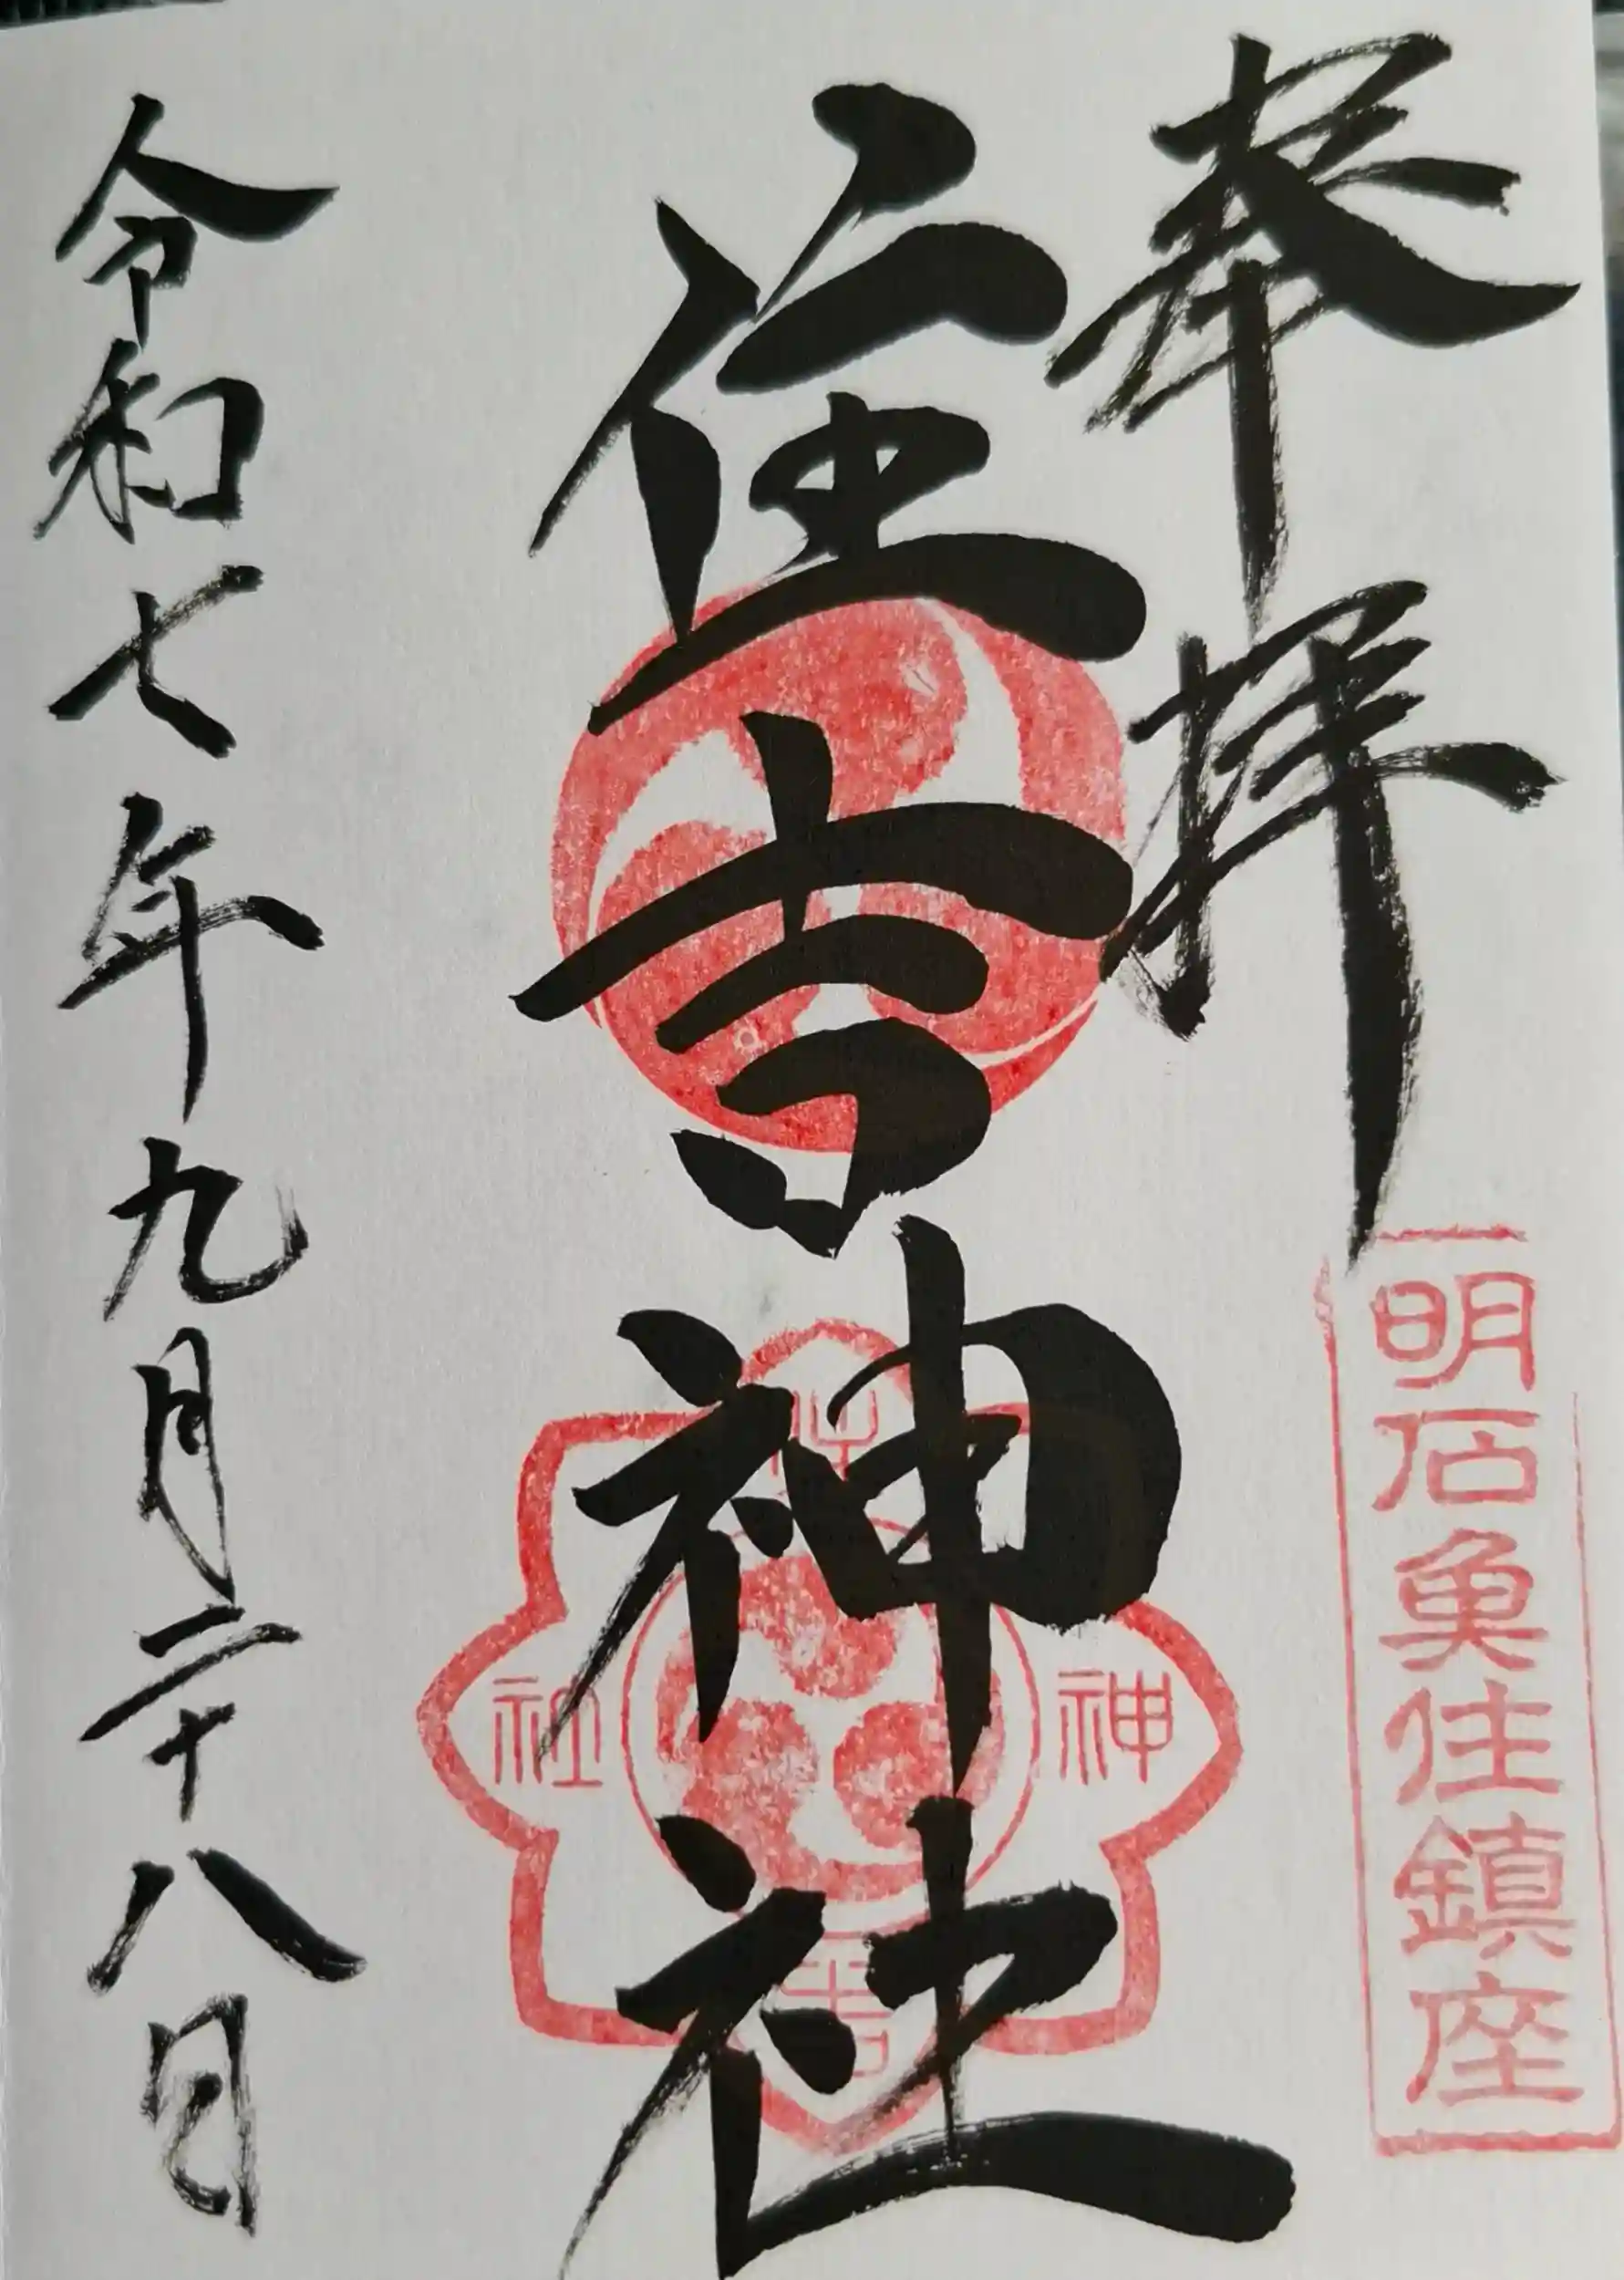 奉拝
明石魚住鎮座
住吉神社
住吉神社
令和七年九月二十八日